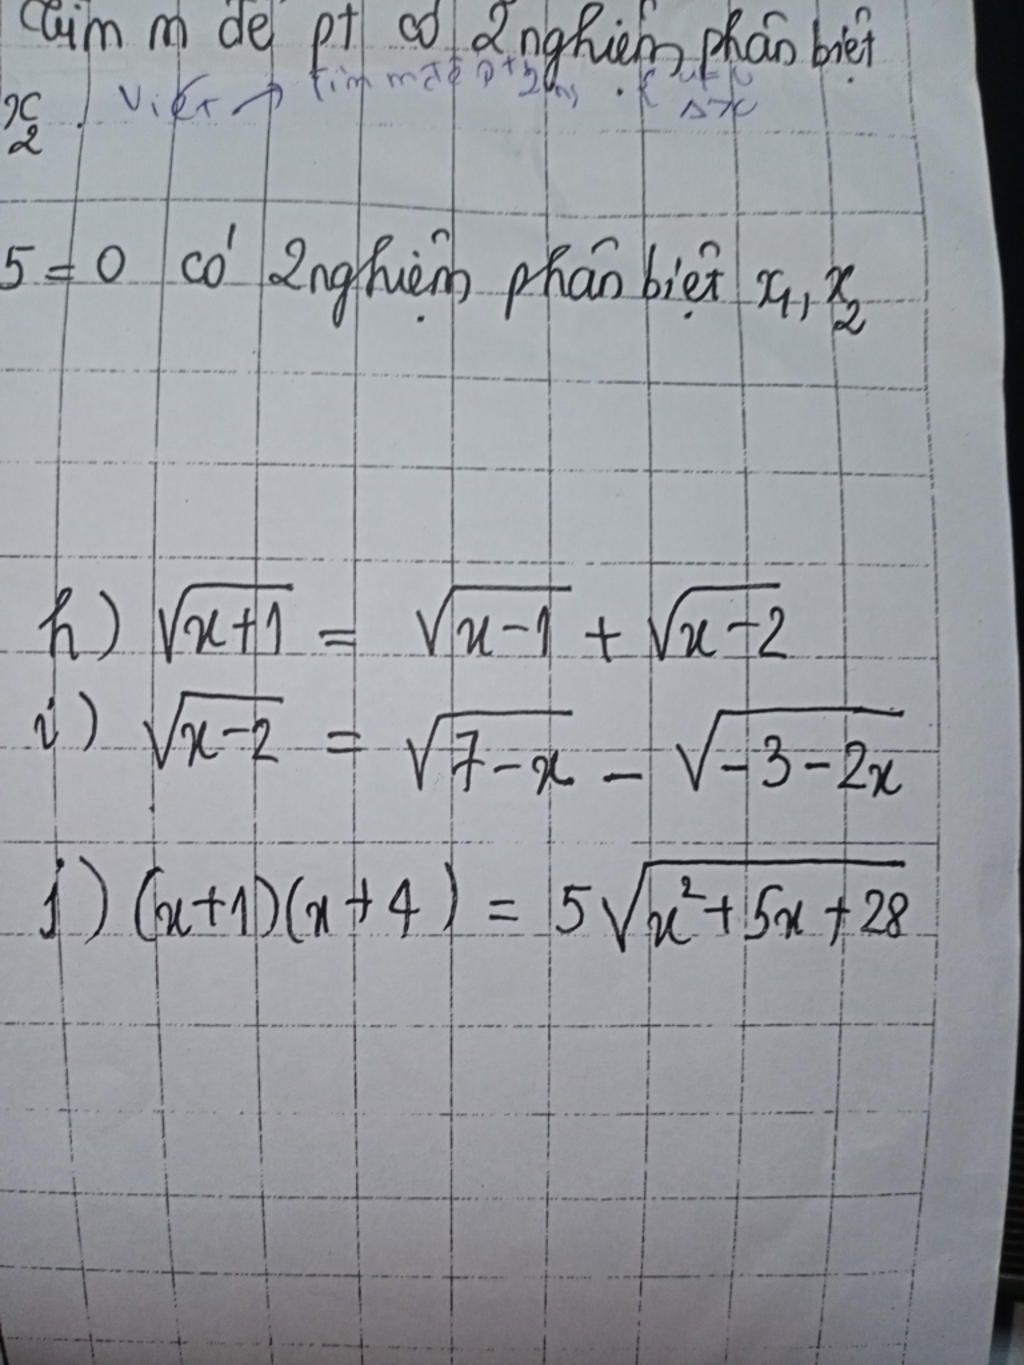 tìm m để pt có 2 nghiệm phân biệt
x₂. Viét → tìm m để pt 2 no
Δ>0
5 = 0 có 2 nghiệm phân biệt x₁, x₂
h) √(x+1) = √(x-1) + √(x-2)
i) √(x-2) = √(7-x) - √(-3-2x)
j) (x+1)(x+4) = 5√(x²+5x+28)